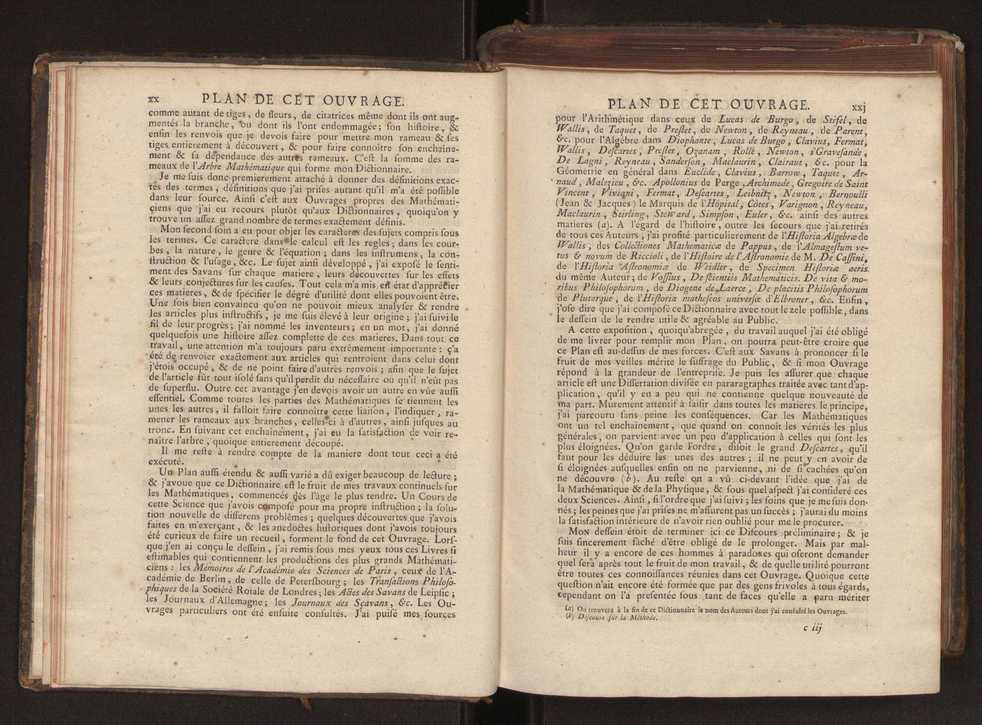 xx PLAN DE CET OUVRAGE.
comme autant de tiges, de fleurs, de citatrices même dont ils ont aug-
mentés la branche, ou dont ils l'ont endommagée; son histoire, &
enfin les renvois que je devois faire pour mettre mon rameau & ses
tiges entierement à découvert, & pour faire connoître son enchzîne-
ment & sa dépendance des autres rameaux. C'est la somme des ra-
meaux de l'Arbre Mathématique qui forme mon Dictionnaire.
Je me suis donc premierement attaché à donner des définitions exac-
tes des termes, définitions que j'ai prises autant qu'il m'a été possible
dans leur source. Ainsi c'est aux Ouvrages propres des Mathémati-
ciens que j'ai eu recours plutôt qu'aux Dictionnaires, quoiqu'on y
trouve un assez grand nombre de termes exactement définis.
Mon second soin a eu pour objet les caracteres des sujets compris sous
les termes. Ce caractere dans le calcul est les regles; dans les cour-
bes, la nature, le genre & l'équation; dans les instrumens, la con-
struction & l'usage, &c. Le sujet ainsi développé, j'ai exposé le senti-
ment des Savans sur chaque matiere, leurs découvertes sur les effets
& leurs conjectures sur les causes. Tout cela m'a mis en état d'apprécier
ces matieres, & de spécifier le dégré d'utilité dont elles pouvoient être.
Une fois bien convaincu qu'on ne pouvoit mieux analyser & rendre
les articles plus instructifs, je me suis élevé à leur origine; j'ai suivi le
fil de leur progrès; j'ai nommé les inventeurs; en un mot, j'ai donné
quelquefois une histoire assez complette de ces matieres. Dans tout ce
travail, une attention m'a toujours paru extrêmement importante: ç'a
été de renvoier exactement aux articles qui rentroient dans celui dont
j'étois occupé, & de ne point faire d'autres renvois; afin que le sujet
de l'article fût tout isolé sans qu'il perdît du nécessaire ou qu'il n'eût pas
de superflu. Outre cet avantage j'en devois avoir un autre en vûe aussi
essentiel. Comme toutes les parties des Mathématiques se tiennent les
unes les autres, il falloit faire connoître cette liaison, l'indiquer, ra-
mener les rameaux aux branches, celles-ci à d'autres, ainsi jusques au
tronc. En suivant cet enchaînement, j'ai eu la satisfaction de voir re-
naître l'arbre, quoique entierement découpé.
Il me reste à rendre compte de la maniere dont tout ceci a été
exécuté.
Un Plan aussi étendu & aussi varié a dû exiger beaucoup de lecture;
& j'avoue que ce Dictionnaire est le fruit de mes travaux continuels sur
les Mathématiques, commencés dès l'âge le plus tendre. Un Cours de
cette Science que j'avois composé pour ma propre instruction; la solu-
tion nouvelle de differens problêmes; quelques découvertes que j'avois
faites en m'exerçant, & les anecdotes historiques dont j'avois toujours
été curieux de faire un recueil, forment le fond de cet Ouvrage. Lors-
que j'en ai conçu le dessein, j'ai remis sous mes yeux tous ces Livres si
estimables qui contiennent les productions des plus grands Mathémati-
ciens: les Mémoires de l'Académie des Sciences de Paris, ceux de l'A-
cadémie de Berlin, de celle de Petersbourg; les Transactions Philoso-
phiques de la Société Roiale de Londres; les Actes des Savans de Leipsic;
les Journaux d'Allemagne; les Journaux des Sçavans, &c. Les Ou-
vrages particuliers ont été ensuite consultés. J'ai puisé mes sources
PLAN DE CET OUVRAGE. xxj
pour l'Arithmétique dans ceux de Lucas de Burgo, de Stifel, de
Wallis, de Taquet, de Prestet, de Newton, de Reyneau, de Parent,
&c. pour l'Algèbre dans Diophante, Lucas de Burgo, Clavius, Fermat,
Wallis, Descartes, Prestet, Ozanam, Rolle, Newton, s'Gravesande,
De Lagni, Reyneau, Sanderson, Maclaurin, Clairaut, &c. pour la
Géometrie en général dans Euclide, Clavius, Barrow, Taquet, Ar-
naud, Malezieu, &c. Apollonius de Perge, Archimede, Gregoire de Saint
Vincent, Viviani, Fermat, Descartes, Leibnitz, Newton, Bernoulli
(Jean & Jacques) le Marquis de l'Hôpital, Côtes, Varignon, Reyneau,
Maclaurin, Stirling, Steward, Simpson, Euler, &c. ainsi des autres
matieres (a). A l'égard de l'histoire, outre les secours que j'ai retirés
de tous ces Auteurs, j'ai profité particulierement de l'Historia Algebræ de
Wallis; des Collectiones Mathematicæ de Pappus, de l'Almagestum ve-
tus & novum de Riccioli, de l'Histoire de l'Astronomie de M. De Cassini,
de l'Historia Astronomiæ de Weidler, de Specimen Historiæ aeris.
du même Auteur; de Vossius, De scientiis Mathematicis. De vita & mo-
ribus Philosophorum, de Diogene de Laerce, De placitis Philosophorum
de Plutarque, de l'Historia matheseos universæ d'Elbroner, &c. Enfin,
j'ose dire que j'ai composé ce Dictionnaire avec tout le zele possible, dans
le dessein de le rendre utile & agréable au Public.
A cette exposition, quoiqu'abregée, du travail auquel j'ai été obligé
de me livrer pour remplir mon Plan, on pourra peut-être croire que
ce Plan est au-dessus de mes forces. C'est aux Savans à prononcer si le
fruit de mes veilles mérite le suffrage du Public, & si mon Ouvrage
répond à la grandeur de l'entreprise. Je puis les assurer que chaque
article est une Dissertation divisée en pararagraphes traitée avec tant d'ap-
plication, qu'il y en a peu qui ne contienne quelque nouveauté de
ma part. Murement attentif à saisir dans toutes les matieres le principe,
j'ai parcouru sans peine les conséquences. Car les Mathématiques
ont un tel enchaînement, que quand on connoît les vérités les plus
générales, on parvient avec un peu d'application à celles qui sont les
plus éloignées. Qu'on garde l'ordre, disoit le grand Descartes, qu'il
faut pour les déduire les unes des autres; il ne peut y en avoir de
si éloignées ausquelles enfin on ne parvienne, ni de si cachées qu'on
ne découvre (b). Au reste on a vû ci-devant l'idée que j'ai de
la Mathématique & de la Physique, & sous quel aspect j'ai consideré ces
deux Sciences. Ainsi, si l'ordre que j'ai suivi; les soins que je me suis don-
nés; les peines que j'ai prises ne m'assurent pas un succès; j'aurai du moins
la satisfaction intérieure de n'avoir rien oublié pour me le procurer.
Mon dessein étoit de terminer ici ce Discours préliminaire; & je
suis sincerement fâché d'être obligé de le prolonger. Mais par mal-
heur il y a encore de ces hommes à paradoxes qui oseront demander
quel sera après tout le fruit de mon travail, & de quelle utilité pourront
être toutes ces connoissances réunies dans cet Ouvrage. Quoique cette
question n'ait encore été formée que par des gens frivoles à tous égards,
cependant on l'a présentée sous tant de faces qu'elle a paru mériter
(a) On trouvera à la fin de ce Dictionnaire le nom des Auteurs dont j'ai consulté les Ouvrages.
(b) Discours sur la Méthode.
c iij